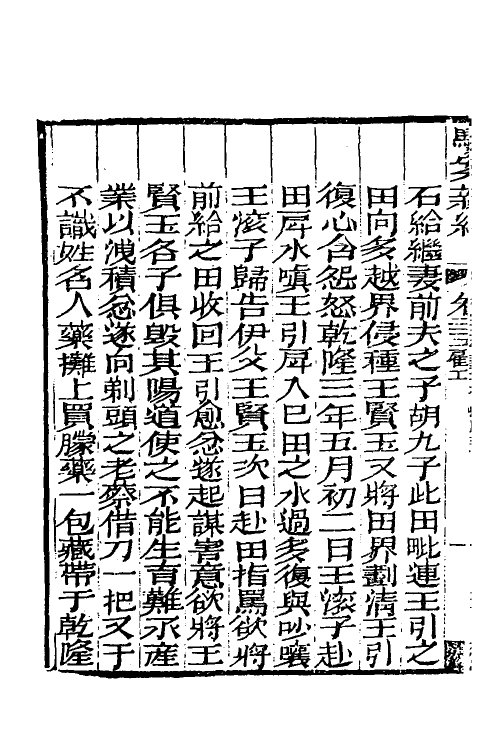 駁案新編
石給繼妻前夫之子胡九子此田毗連王引之
田向多越界侵種王賢玉又將田界劃清王引
復心含怨怒乾隆三年五月初二日王滾子赴
田戽水嗔王引戽入已田之水過多復與吵嚷
王滾子歸告伊父王賢玉次日赴田指罵欲將
前給之田收回王引愈忿遂起謀害意欲將王
賢玉各子俱毀其陽道使之不能生育難承產
業以洩積忿遂向剃頭之老蔡借刀一把又于
不識姓名人藥攤上買朦藥一包藏帶于乾隆